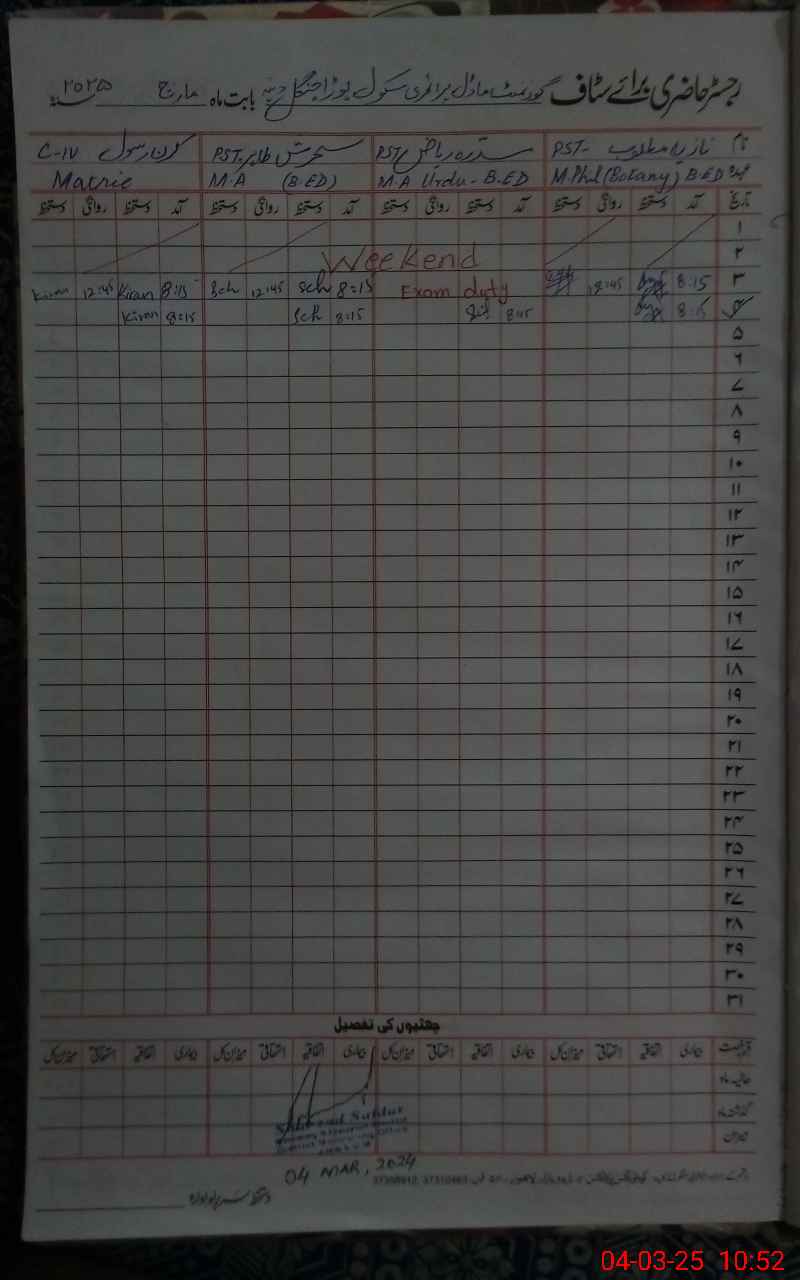 رجسٹر حاضری برائے سٹاف گورنمنٹ ماڈل پرائمری سکول بوڑا جنگل بابت ماہ مارچ ۲۰۲۵
نام نازیہ مطلوب PST- سدرہ ریاض PST سحرش طاہر PST- کرن رسول C-IV
عہدہ M.Phil (Botany) B.ED M.A Urdu - B.ED M.A (B.ED) Matric
تاریخ آمد دستخط روانگی دستخط آمد دستخط روانگی دستخط آمد دستخط روانگی دستخط آمد دستخط روانگی دستخط
۱
۲ Weekend
۳ 8:15 18:45 Exam duty 8:15 Sch 12:45 Sch 8:15 Kiran 12:45 Kiran
۴ 8:15 8:45 8:15 Sch 8:15 Kiran
۵
۶
۷
۸
۹
۱۰
۱۱
۱۲
۱۳
۱۴
۱۵
۱۶
۱۷
۱۸
۱۹
۲۰
۲۱
۲۲
۲۳
۲۴
۲۵
۲۶
۲۷
۲۸
۲۹
۳۰
۳۱
چھٹیوں کی تفصیل
بیماری اتفاقیہ استحقاقی میزان کل بیماری اتفاقیہ استحقاقی میزان کل بیماری اتفاقیہ استحقاقی میزان کل بیماری اتفاقیہ استحقاقی میزان کل
حالیہ ماہ
گذشتہ ماہ
میزان
04 MAR, 2024
04-03-25 10:52